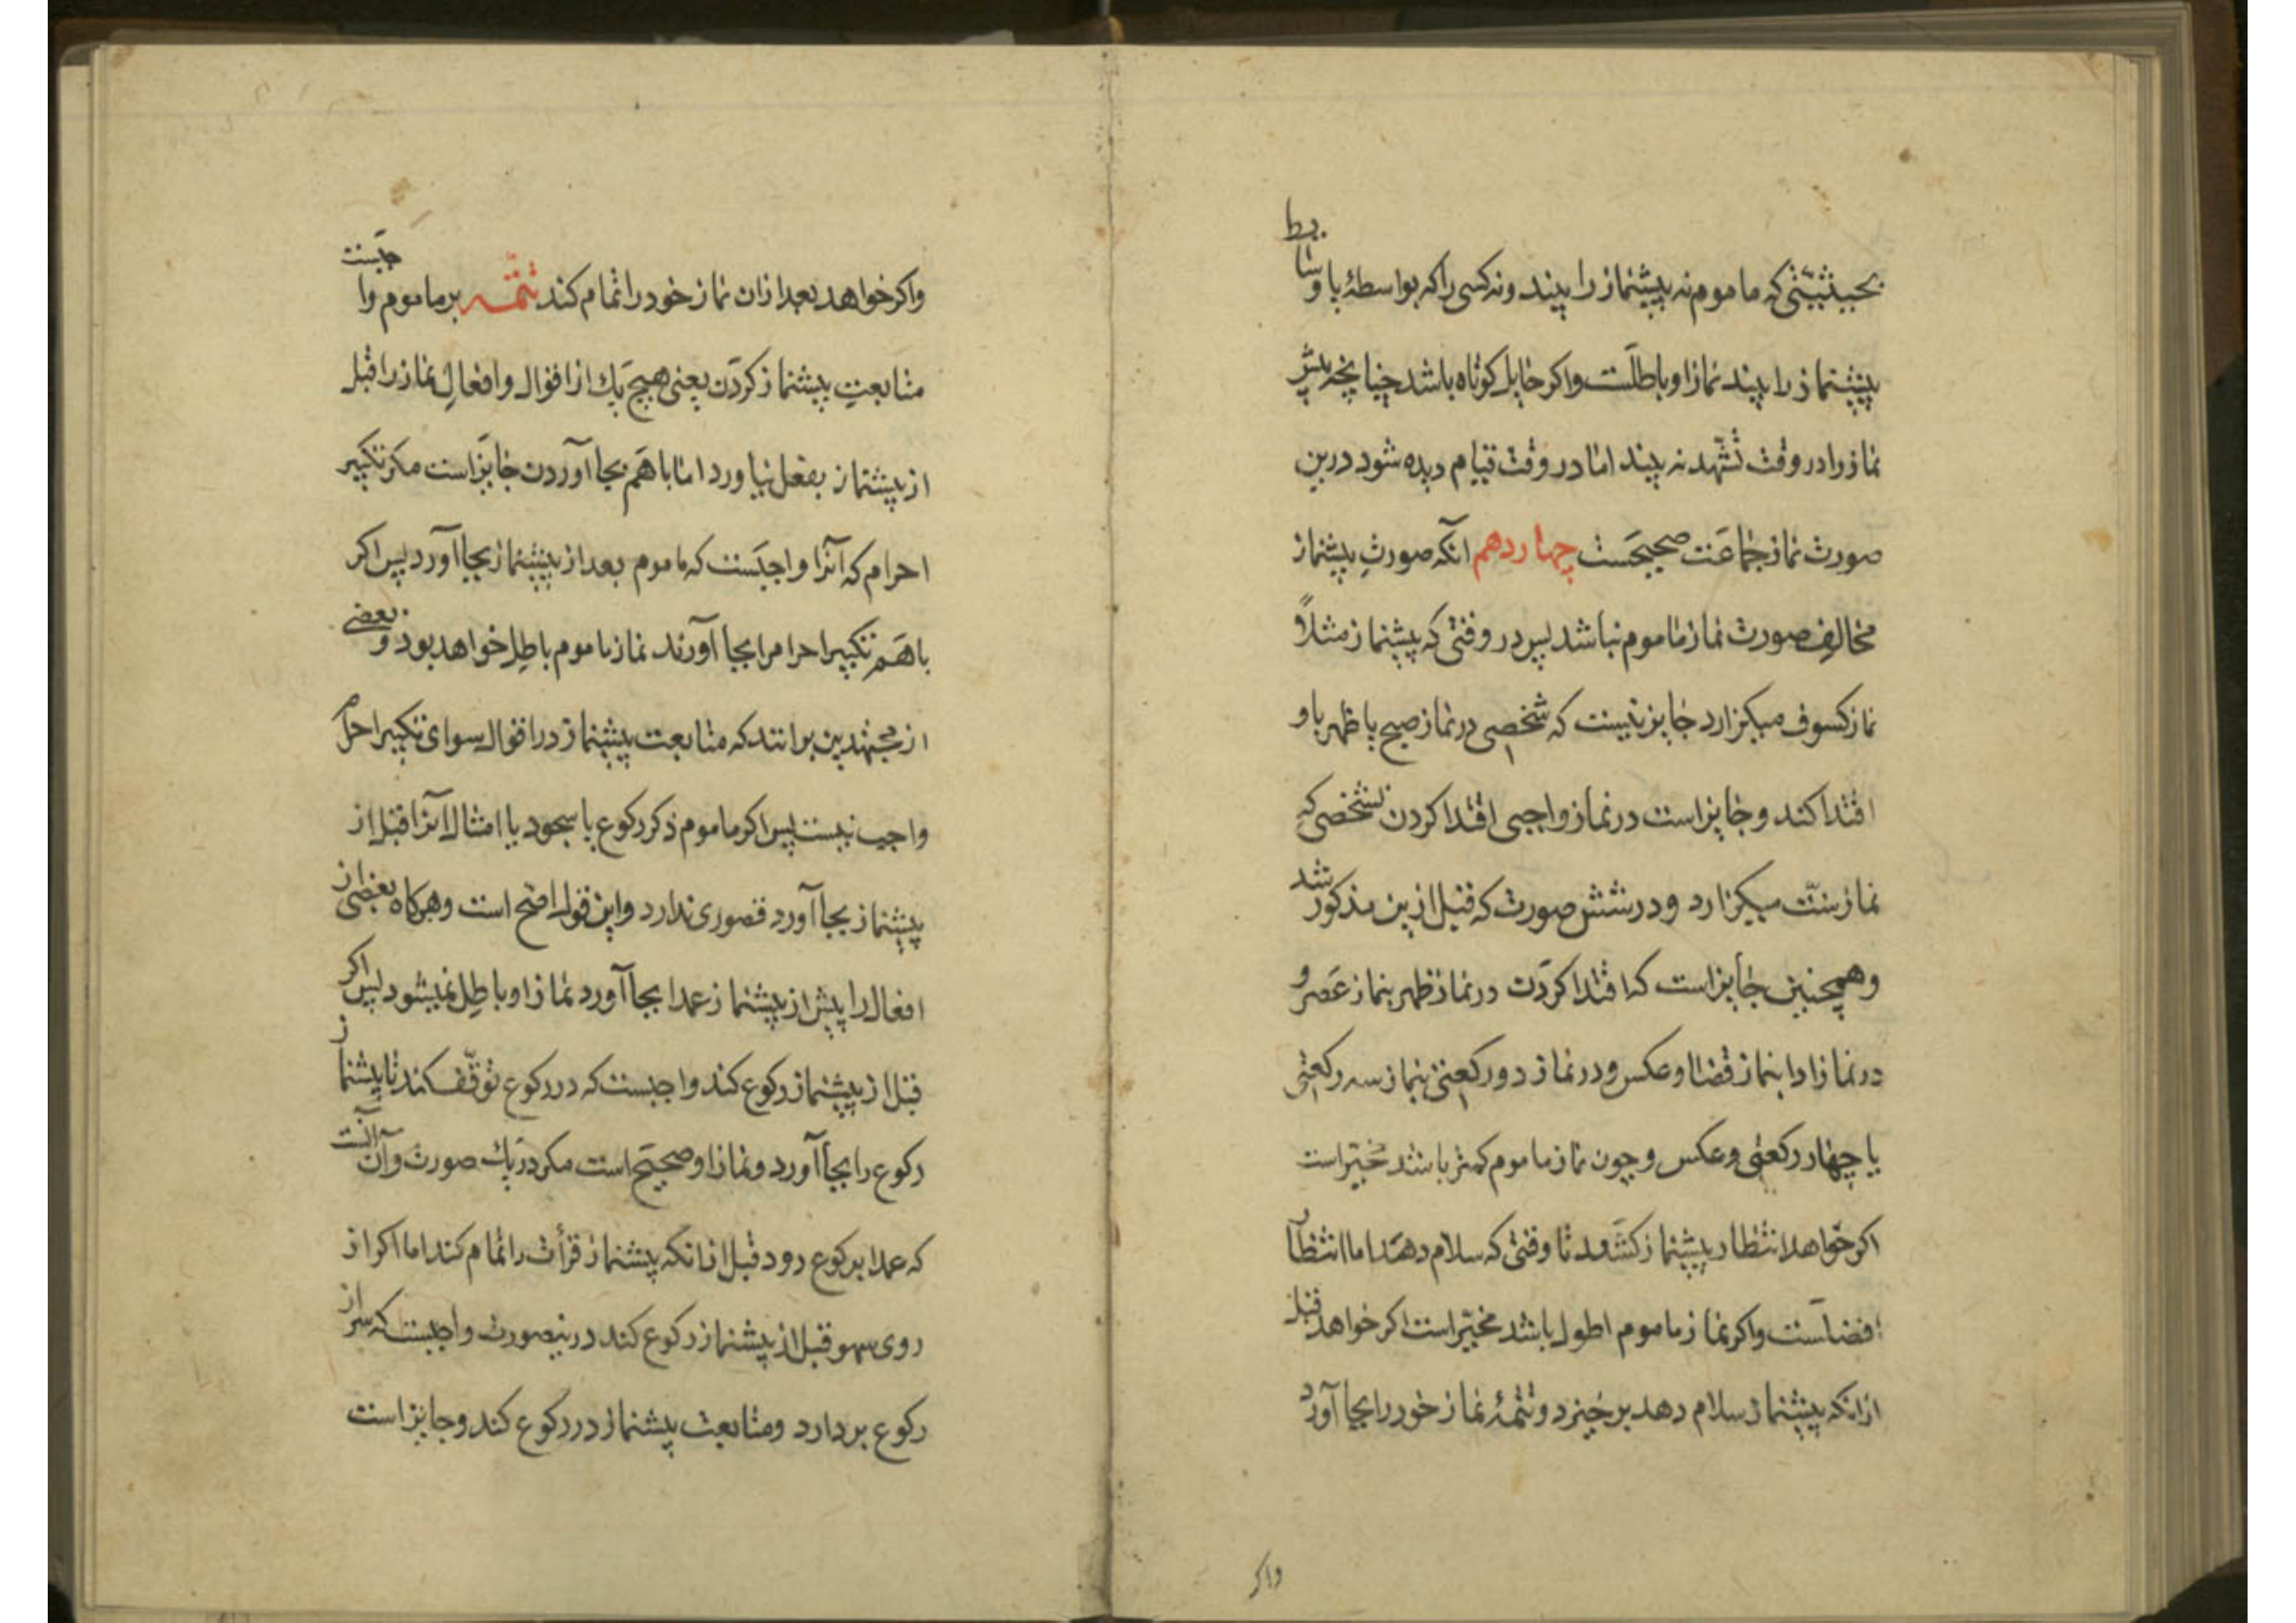 بحیثیتی که ماموم نه پیشنماز را بیند و نه کسی را که بواسطهٔ یا وسایط
پیشنماز را بیند نماز او باطلست و اکر حایل کوتاه باشد چنانچه پیش
نماز را در وقت تشهّد نه بیند اما در وقت قیام دیده شود درین
صورت نماز جماعت صحیحست چهاردهم انکه صورت پیشنماز
مخالف صورت نماز ماموم نباشد پس در وقتی که پیشنماز مثلاً
نماز کسوف میکزارد جایز نیست که شخصی در نماز صبح یا ظهر باو
اقتدا کند و جایز است در نماز واجبی اقتدا کردن بشخصی که
نماز سنّت میکزارد و در شش صورت که قبل ازین مذکور شد
و همچنین جایز است که اقتدا کردن در نماز ظهر بنماز عصر و
در نماز ادا بنماز قضا و عکس و در نماز دو رکعتی بنماز سه رکعتی
یا چهار رکعتی و عکس و چون نماز ماموم کمتر باشد مخیّر است
اکر خواهد انتظار پیشنماز کشد تا وقتی که سلام دهد اما انتظار
افضلست و اکر نماز ماموم اطول باشد مخیّر است اکر خواهد قبل
ازانکه پیشنماز سلام دهد برخیزد و تتمهٔ نماز خود را بجا آورد
واکر
واکر خواهد بعد ازان نماز خود را تمام کند تتمّه بر ماموم واجبست
متابعت پیشنماز کردن یعنی هیچ یک از اقوال و افعال نماز را قبل
از پیشنماز بفعل نیاورد اما باهم بجا آوردن جایز است مکر تکبیر
احرام که آنرا واجبست که ماموم بعد از پیشنماز بجا آورد پس اکر
باهم تکبیر احرام را بجا آورند نماز ماموم باطل خواهد بود و بعضی
از مجتهدین برانند که متابعت پیشنماز در اقوال سوای تکبیر احرام
واجب نیست پس اکر ماموم ذکر رکوع یا سجود یا امثال آنرا قبل از
پیشنماز بجا آورد قصوری ندارد و این قول اصّح است و هرکاه بعضی از
افعال را پیش از پیشنماز عمدا بجا آورد نماز او باطل نمیشود پس اکر
قبل از پیشنماز رکوع کند واجبست که در رکوع توقّف کند تا پیشنماز
رکوع را بجا آورد و نماز او صحیح است مکر در یک صورت و آن آنست
که عمدا برکوع رود قبل ازانکه پیشنماز قرأت را تمام کند اما اکر از
روی سهو قبل از پیشنماز رکوع کند درینصورت واجبست که سر از
رکوع بردارد و متابعت پیشنماز در رکوع کند و جایز است